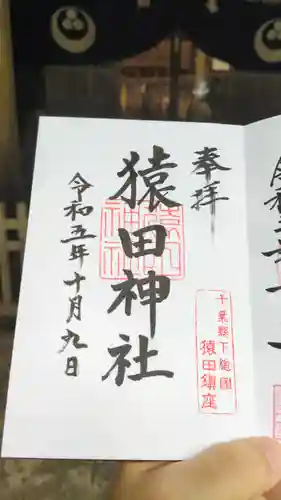 奉拝
千葉縣下総国
猿田鎮座
猿田神社
令和五年十月九日